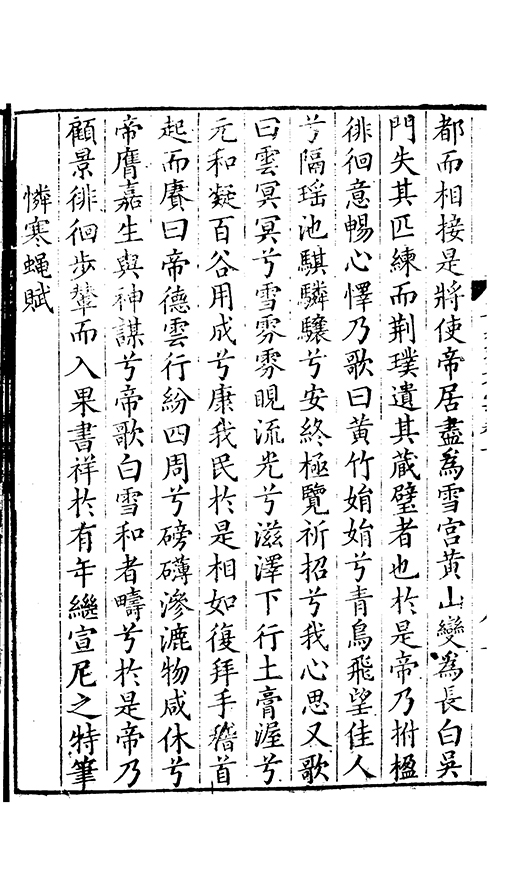 都而相接是將使帝居盡爲雪宮黃山變爲長白吳
門失其匹練而荆璞遺其蔵璧者也於是帝乃拊楹
徘徊意暢心懌乃歌曰黃竹娟娟兮青鳥飛望佳人
兮隔瑶池騏驎驤兮安終極覽祈招兮我心思又歌
曰雲冥冥兮雪雰雰晛流光兮滋澤下行土膏渥兮
元和凝百谷用成兮康我民於是相如復拜手稽首
起而賡曰帝德雲行紛四周兮磅礴滲漉物咸休兮
帝膺嘉生與神謀兮帝歌白雪和者疇兮於是帝乃
顧景徘徊步輦而入果書祥於有年繼宣尼之特筆
憐寒蝿賦